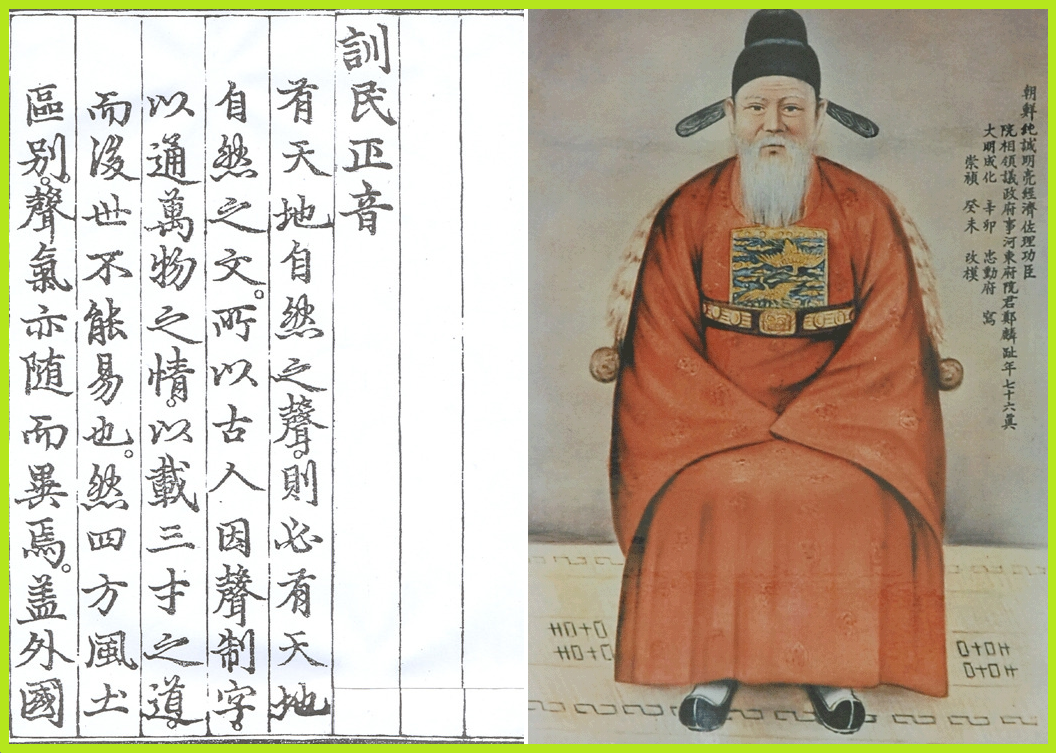 訓民正音
有天地自然之聲。則必有天地
自然之文。所以古人因聲制字。
以通萬物之情。以載三才之道。
而後世不能易也。然四方風土
區別。聲氣亦随而異焉。盖外國
朝鮮純誠明亮經濟佐理功臣
院相領議政府事河東府院君鄭麟趾年七十六眞
大明成化 辛卯 忠勳府 寫
崇禎 癸未 改模